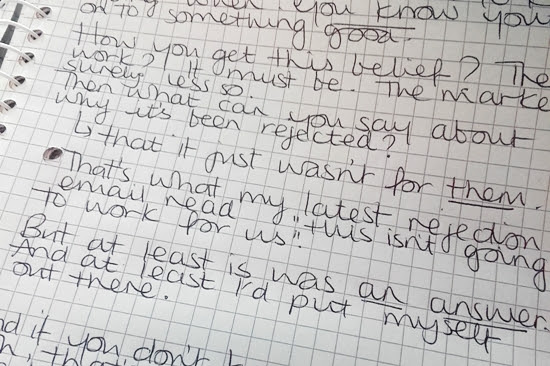 when you know you
on to something good.
How you get this belief? The
work? It must be. The marke
surely less so.
Then what can you say about
why it's been rejected?
↳ that it just wasn't for them.
That's what my latest rejection
email read "this isn't going
to work for us".
But at least is was an answer.
And at least I'd put myself
out there.
nd if you don't